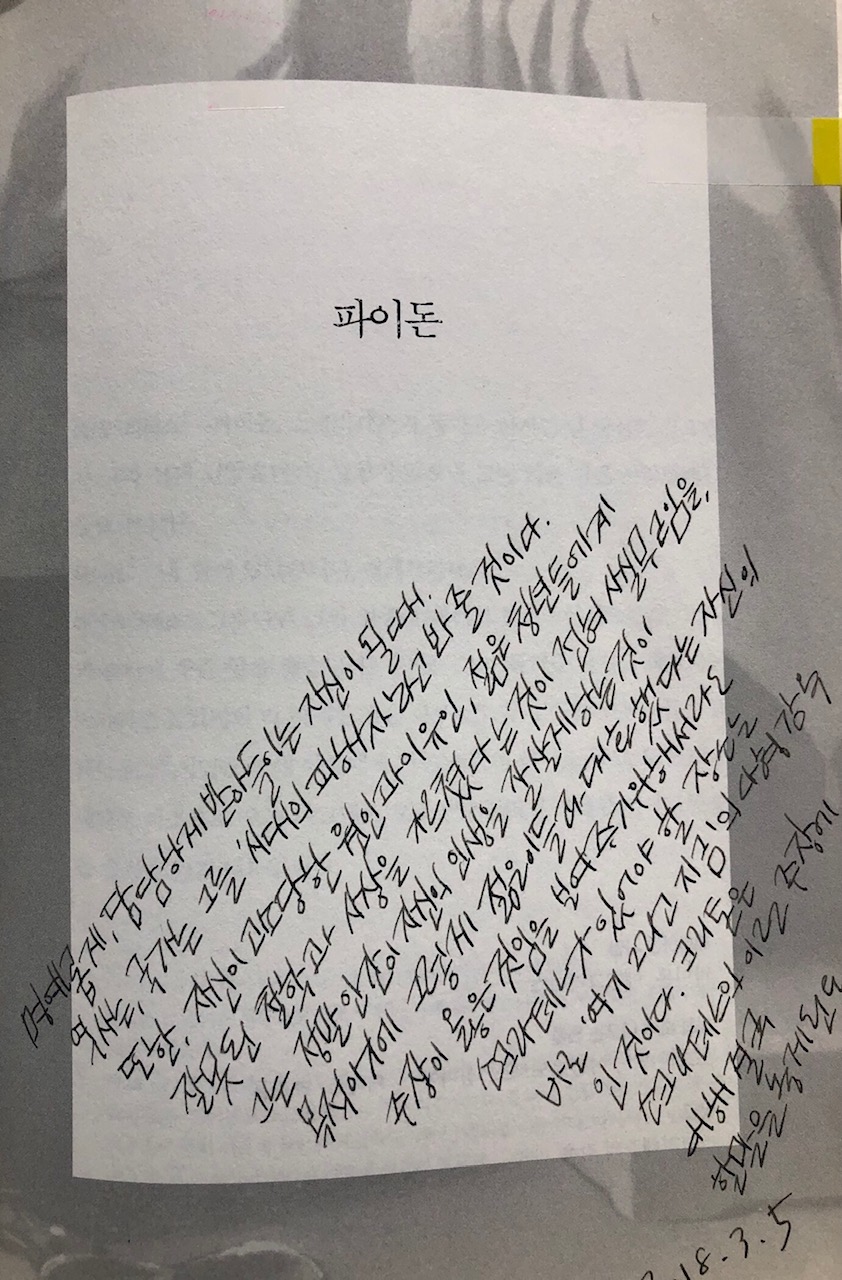 파이돈
명예롭게, 담담하게 받아들이는 자신이 될 때.
역사는, 국가는 그를 '시대의 피해자'라고 봐 줄 것이다.
또한, 자신이 고발당한 원인과 이유인, 젊은 청년들에게
잘못된 철학과 사상을 가르쳤다는 것이 전혀 사실무근임을,
그는 정말 안간 자신의 인생을 잘 살게 하는 것이
무엇인가에 고운게 젊은이들과 대논했다는 자신의
주장이 옳은 것임을 보여주기 위해서라도
소크라테스가 있어야 할 장소는
바로 '여기 그리고 지금'의 사형 감옥
인 것이다. 크리톤은
소크라테스의 이런 주장에
대해 결코
할말을 잃게된다
18.3.5